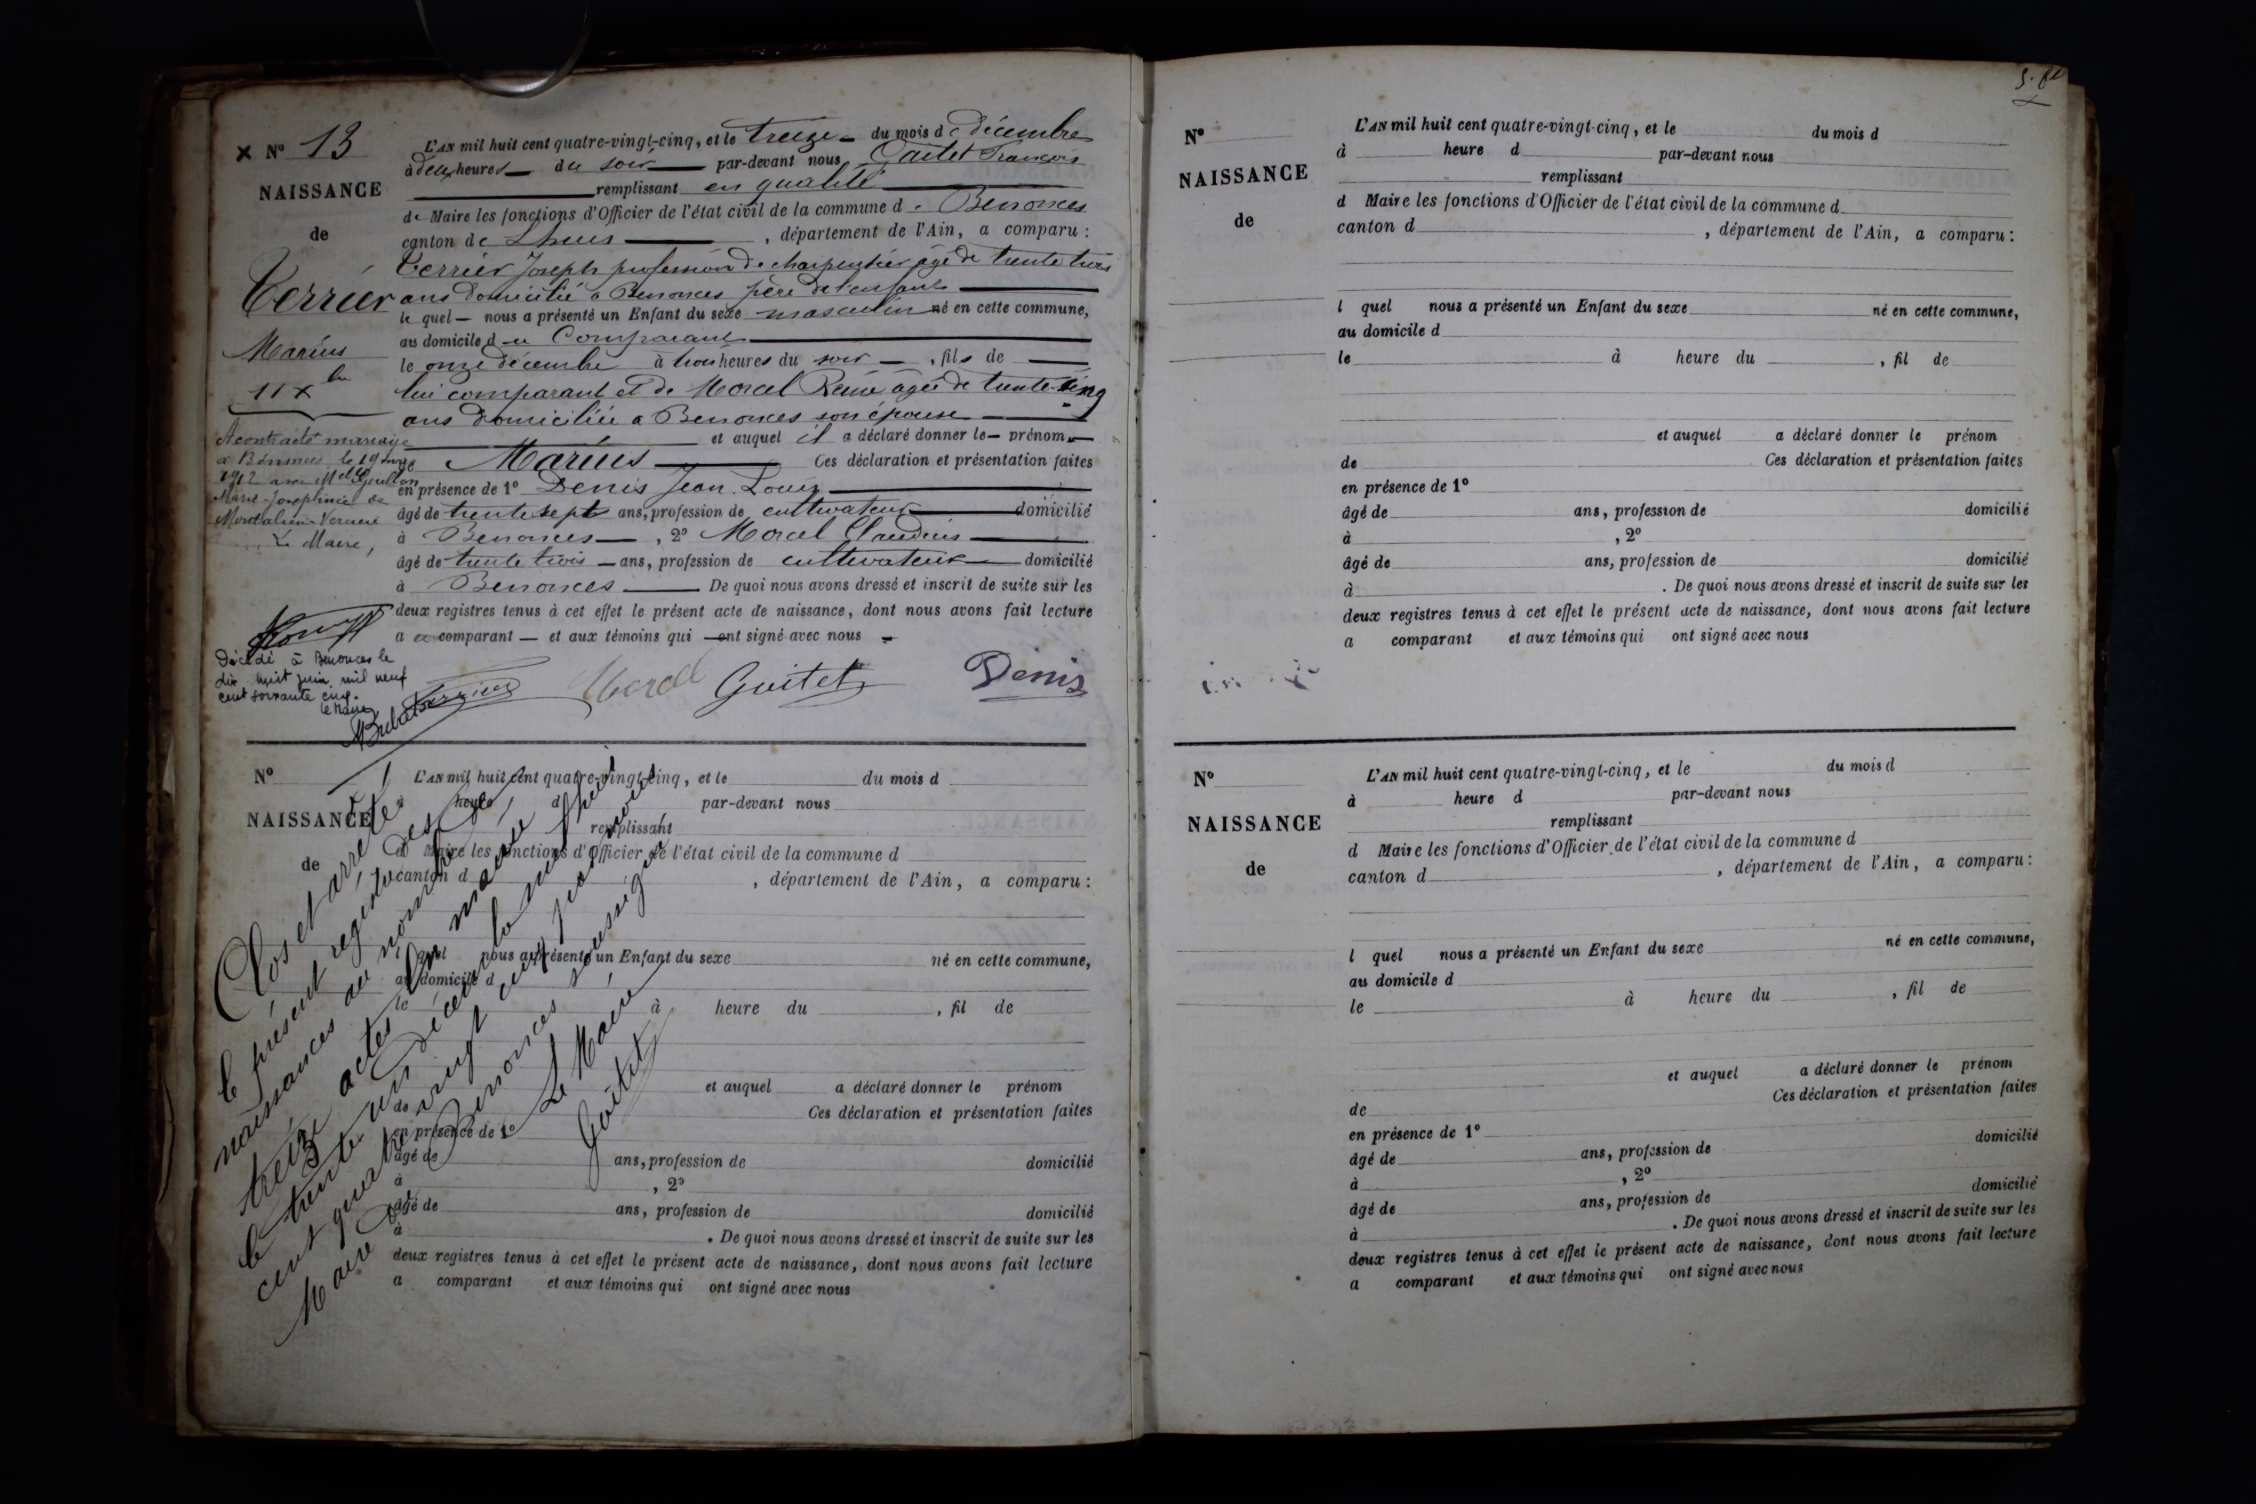 × N° 13
NAISSANCE
de
Terrier
Marius
11 Xbre
A contracté mariage
à Bénonces le 19
1912 avec Melle Guillon
Marie-Joséphine de
Montalieu-Vercieu
Le Maire,
Décédé à Benonces le
dix huit juin mil neuf
cent soixante cinq.
le Maire
L'AN mil huit cent quatre-vingt-cinq, et le treize du mois de décembre
à deux heures du soir par-devant nous Guitet François
remplissant en qualité
de Maire les fonctions d'Officier de l'état civil de la commune de Benonces
canton de Lhuis, département de l'Ain, a comparu :
Terrier Joseph profession de charpentier âgé de trente trois
ans domicilié à Benonces père de l'enfant
lequel nous a présenté un Enfant du sexe masculin né en cette commune,
au domicile du Comparant
le onze décembre à trois heures du soir, fils de
lui comparant et de Morel Reine âgée de trente cinq
ans domiciliée a Benonces son épouse
et auquel il a déclaré donner le prénom
de Marius Ces déclaration et présentation faites
en présence de 1° Denis Jean Louis
âgé de trente sept ans, profession de cultivateur domicilié
à Benonces, 2° Morel Claudius
âgé de trente trois ans, profession de cultivateur domicilié
à Benonces De quoi nous avons dressé et inscrit de suite sur les
deux registres tenus à cet effet le présent acte de naissance, dont nous avons fait lecture
au comparant et aux témoins qui ont signé avec nous
Terrier Morel Guitet Denis
N°
NAISSANCE
de
L'AN mil huit cent quatre-vingt-cinq, et le du mois d
à heure d par-devant nous
remplissant
d Maire les fonctions d'Officier de l'état civil de la commune d
canton d , département de l'Ain, a comparu :
l quel nous a présenté un Enfant du sexe né en cette commune,
au domicile d
le à heure du , fil de
et auquel a déclaré donner le prénom
de Ces déclaration et présentation faites
en présence de 1°
âgé de ans, profession de domicilié
à , 2°
âgé de ans, profession de domicilié
à . De quoi nous avons dressé et inscrit de suite sur les
deux registres tenus à cet effet le présent acte de naissance, dont nous avons fait lecture
a comparant et aux témoins qui ont signé avec nous
Clos et arrêté
le présent registre des
naissances au nombre de
treize actes en mairie
le trente un décembre mil huit
cent quatre vingt cinq par nous
Maire de Benonces soussigné
Le Maire
Guitet
N°
NAISSANCE
de
L'AN mil huit cent quatre-vingt-cinq, et le du mois d
à heure d par-devant nous
remplissant
d Maire les fonctions d'Officier de l'état civil de la commune d
canton d , département de l'Ain, a comparu :
l quel nous a présenté un Enfant du sexe né en cette commune,
au domicile d
le à heure du , fil de
et auquel a déclaré donner le prénom
de Ces déclaration et présentation faites
en présence de 1°
âgé de ans, profession de domicilié
à , 2°
âgé de ans, profession de domicilié
à . De quoi nous avons dressé et inscrit de suite sur les
deux registres tenus à cet effet le présent acte de naissance, dont nous avons fait lecture
a comparant et aux témoins qui ont signé avec nous
N°
NAISSANCE
de
L'AN mil huit cent quatre-vingt-cinq, et le du mois d
à heure d par-devant nous
remplissant
d Maire les fonctions d'Officier de l'état civil de la commune d
canton d , département de l'Ain, a comparu :
l quel nous a présenté un Enfant du sexe né en cette commune,
au domicile d
le à heure du , fil de
et auquel a déclaré donner le prénom
de Ces déclaration et présentation faites
en présence de 1°
âgé de ans, profession de domicilié
à , 2°
âgé de ans, profession de domicilié
à . De quoi nous avons dressé et inscrit de suite sur les
deux registres tenus à cet effet le présent acte de naissance, dont nous avons fait lecture
a comparant et aux témoins qui ont signé avec nous